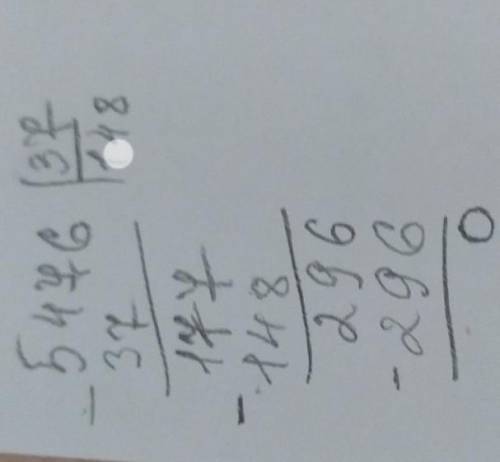 - 5476 | 37
37 | 148
177
- 148
296
- 296
0